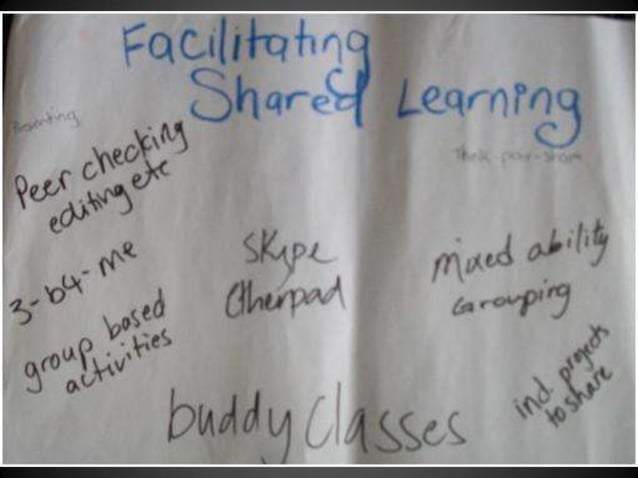 Facilitating
Shared Learning
Presenting
Think-pair-share
Peer checking
editing etc
Skype
Etherpad
mixed ability
Grouping
3-b4-me
group based
activities
ind. projects
to share
buddy classes